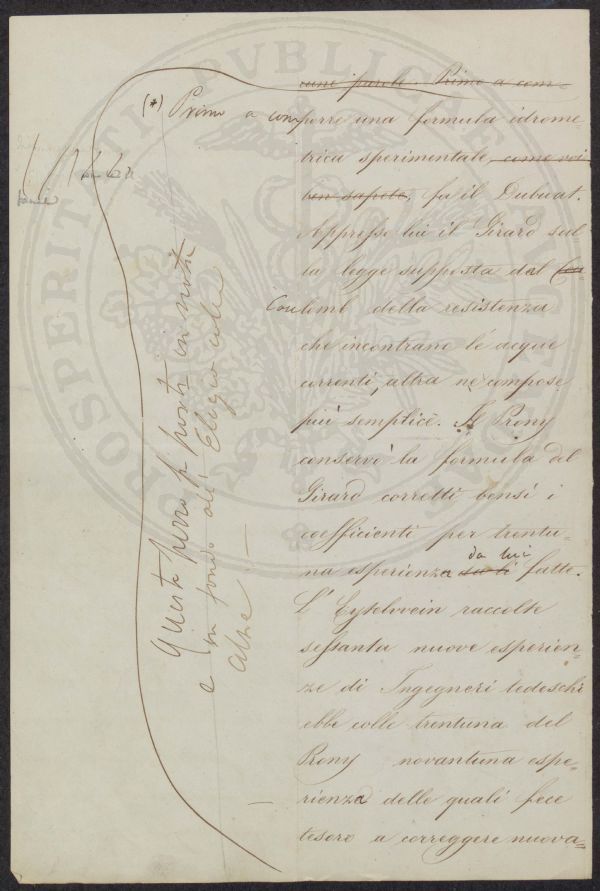 cune parole. Primo a com=
(*) Primo a comporre una formula idrome=
trica sperimentale, come voi
ben sapete, fu il Dubuat.
Appresso lui il Girard sul
la legge supposta dal Cou
Coulomb della resistenza
che incontrano le acque
correnti, altra ne compose
più semplice. Il Prony
conservò la formula del
Girard corretti bensì i
coefficienti per trentu=
na esperienza da lui fatte.
L'Eytelwein raccolte
sessanta nuove esperien=
ze di Ingegneri tedeschi
ebbe colle trentuna del
Prony novantuna espe=
rienza delle quali fece
tesoro a correggere nuova=
Questo pezzo si porti in nota
e in fondo all'Elogio colle
altre —
PROSPERITATI PVBLICAE